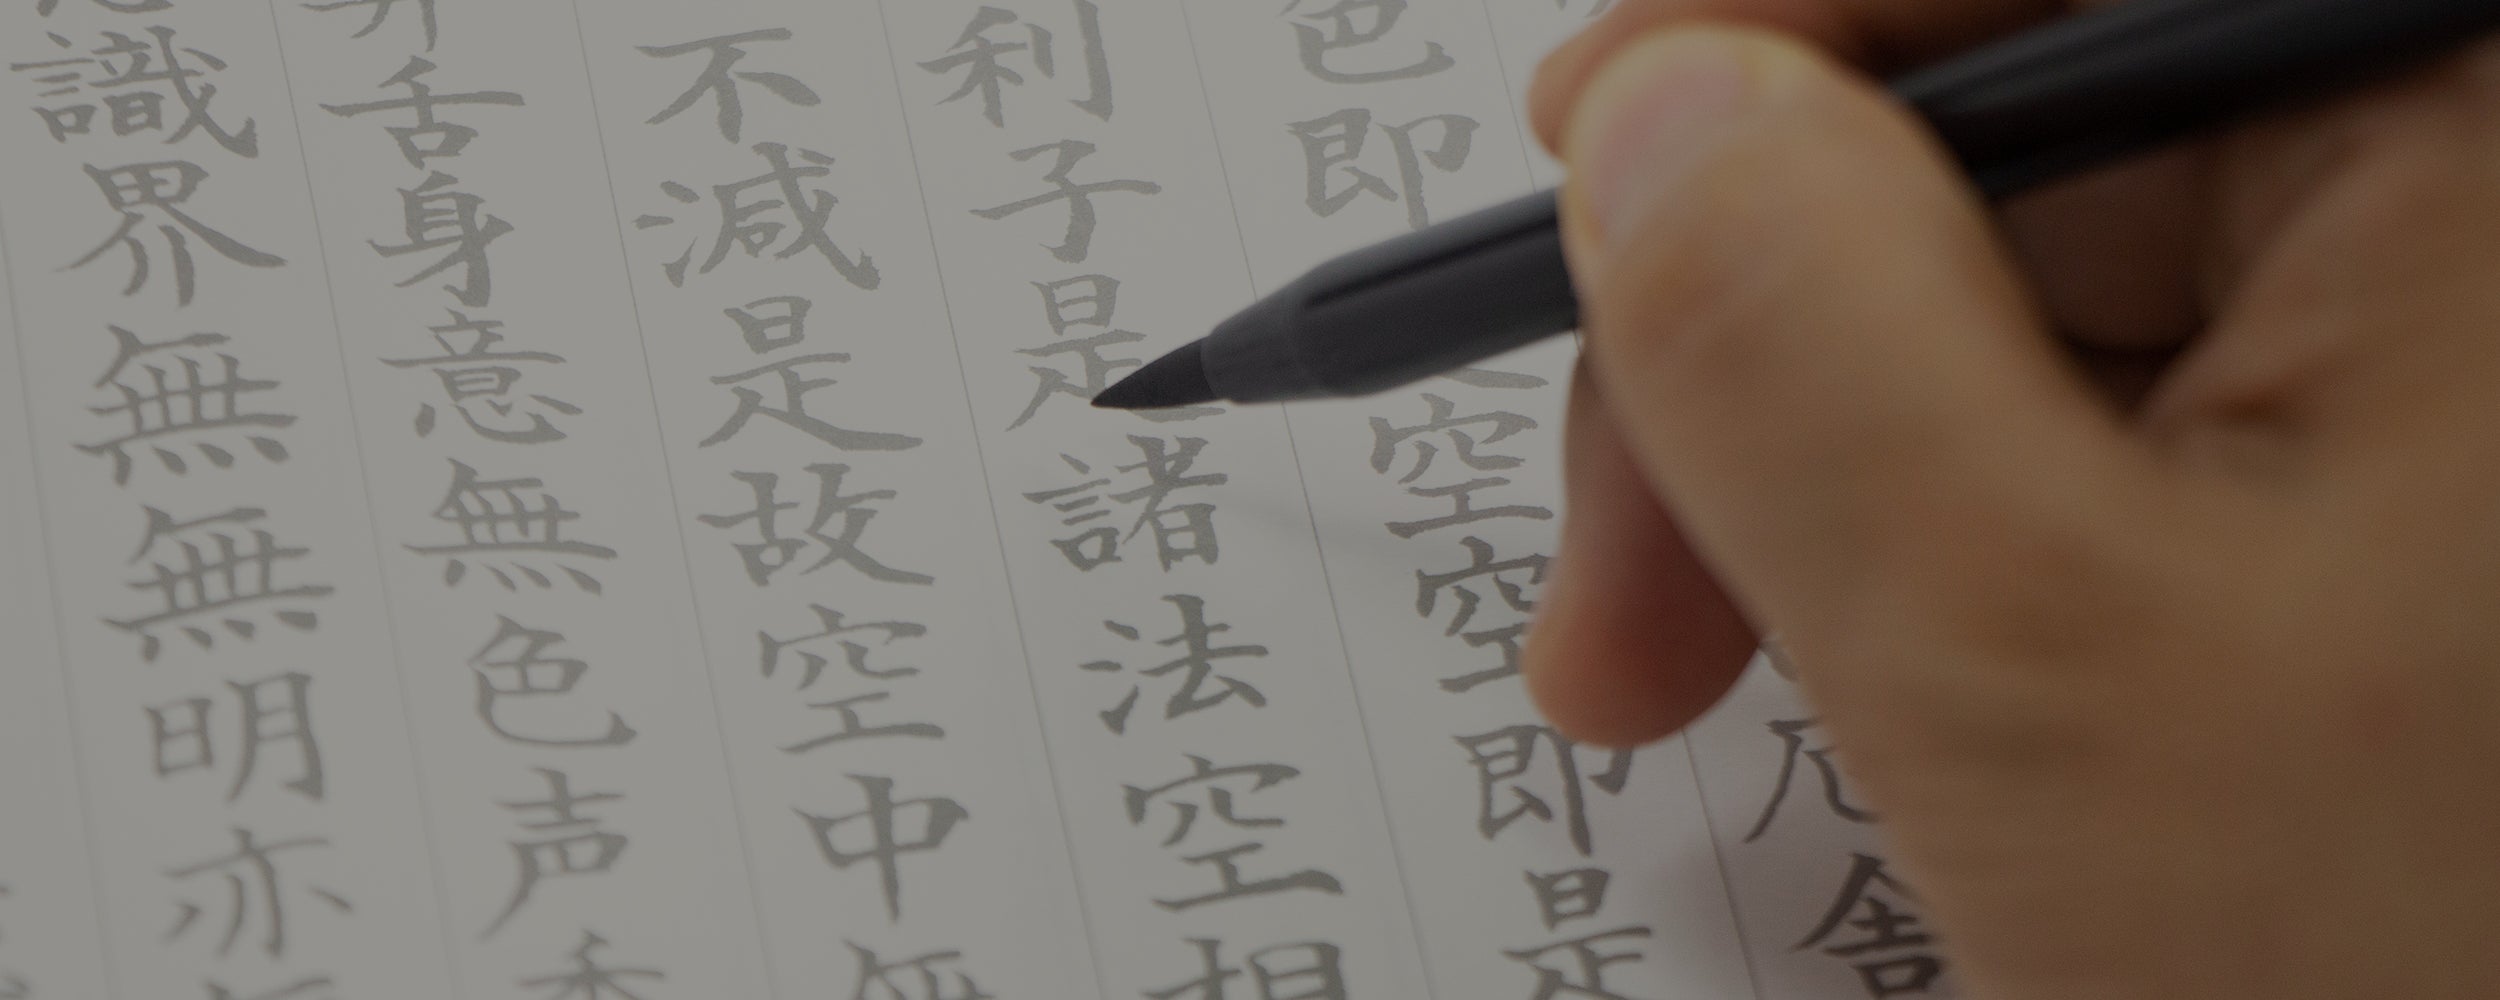 厄舎
色即空空即是
利子是諸法空相
不減是故空中無
舌身意無色声香
識界無無明亦